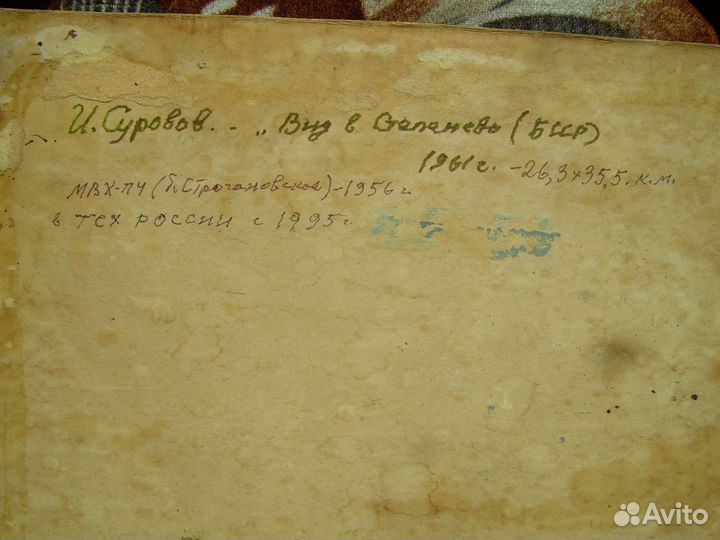 И. Суровов. - „ Вид в Степанево (БССР)
1961г. -26,3х35,5. к.м.
МВХ-ПУ (б. Строгановское) -1956 г.
в ТСХ РОССИИ с 1995г.
Avito